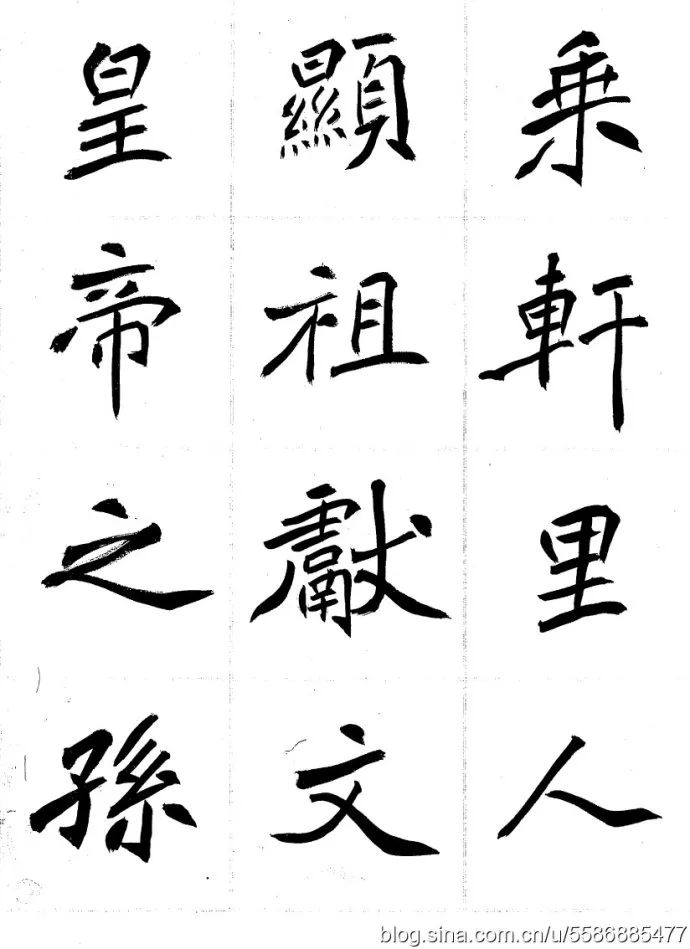 乗軒里人
顯祖獻文
皇帝之孫
blog.sina.com.cn/u/5586885477